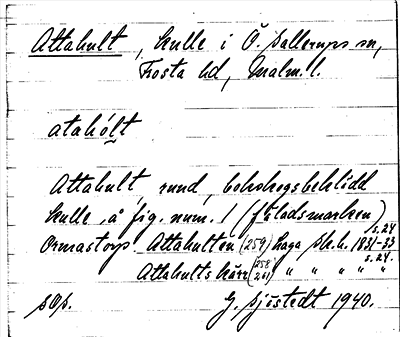 Attahult, kulle i Ö. Sallerups sn,
Frosta hd, Malm. l.
atahólt
Attahult, rund, bokskogsbeklädd
kulle å fig. num. 1 (fäladsmarken)
Ormastorp. Attahulten (259) haga sk.h. 1831-33 s.24
Attahults kärr (258 261) " " " " " s.24.
sOp. G. Sjöstedt 1940.